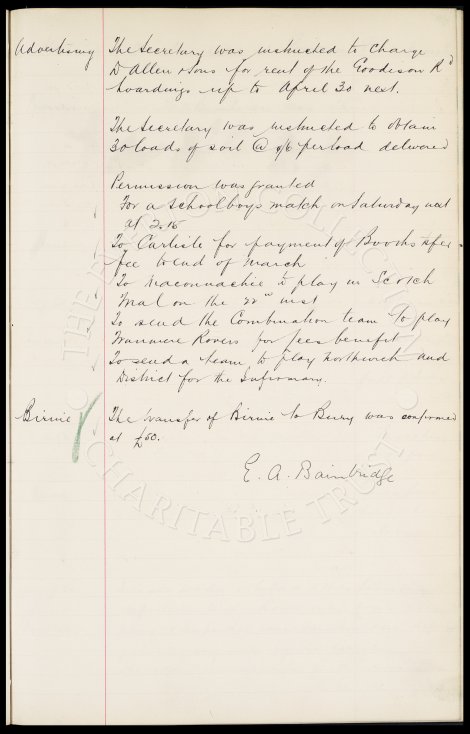 Advertising The Secretary was instructed to charge
D Allen & Sons for rent of the Goodison Rd
hoardings up to April 30 next.
The Secretary was instructed to obtain
30 loads of soil @ 2/6 per load delivered
Permission was granted
For a schoolboys match on Saturday next
at 2.15
To Carlisle for payment of Booth's tsfer
fee to end of March
To Maconnachie to play in Scotch
Trial on the 22nd inst
To send the Combination team to play
Tranmere Rovers for Jees benefit
To send a team to play Northwich and
District for the Infirmary.
Birnie The transfer of Birnie to Bury was confirmed
at £50.
E. A. Bainbridge
THE EVERTON COLLECTION
CHARITABLE TRUST